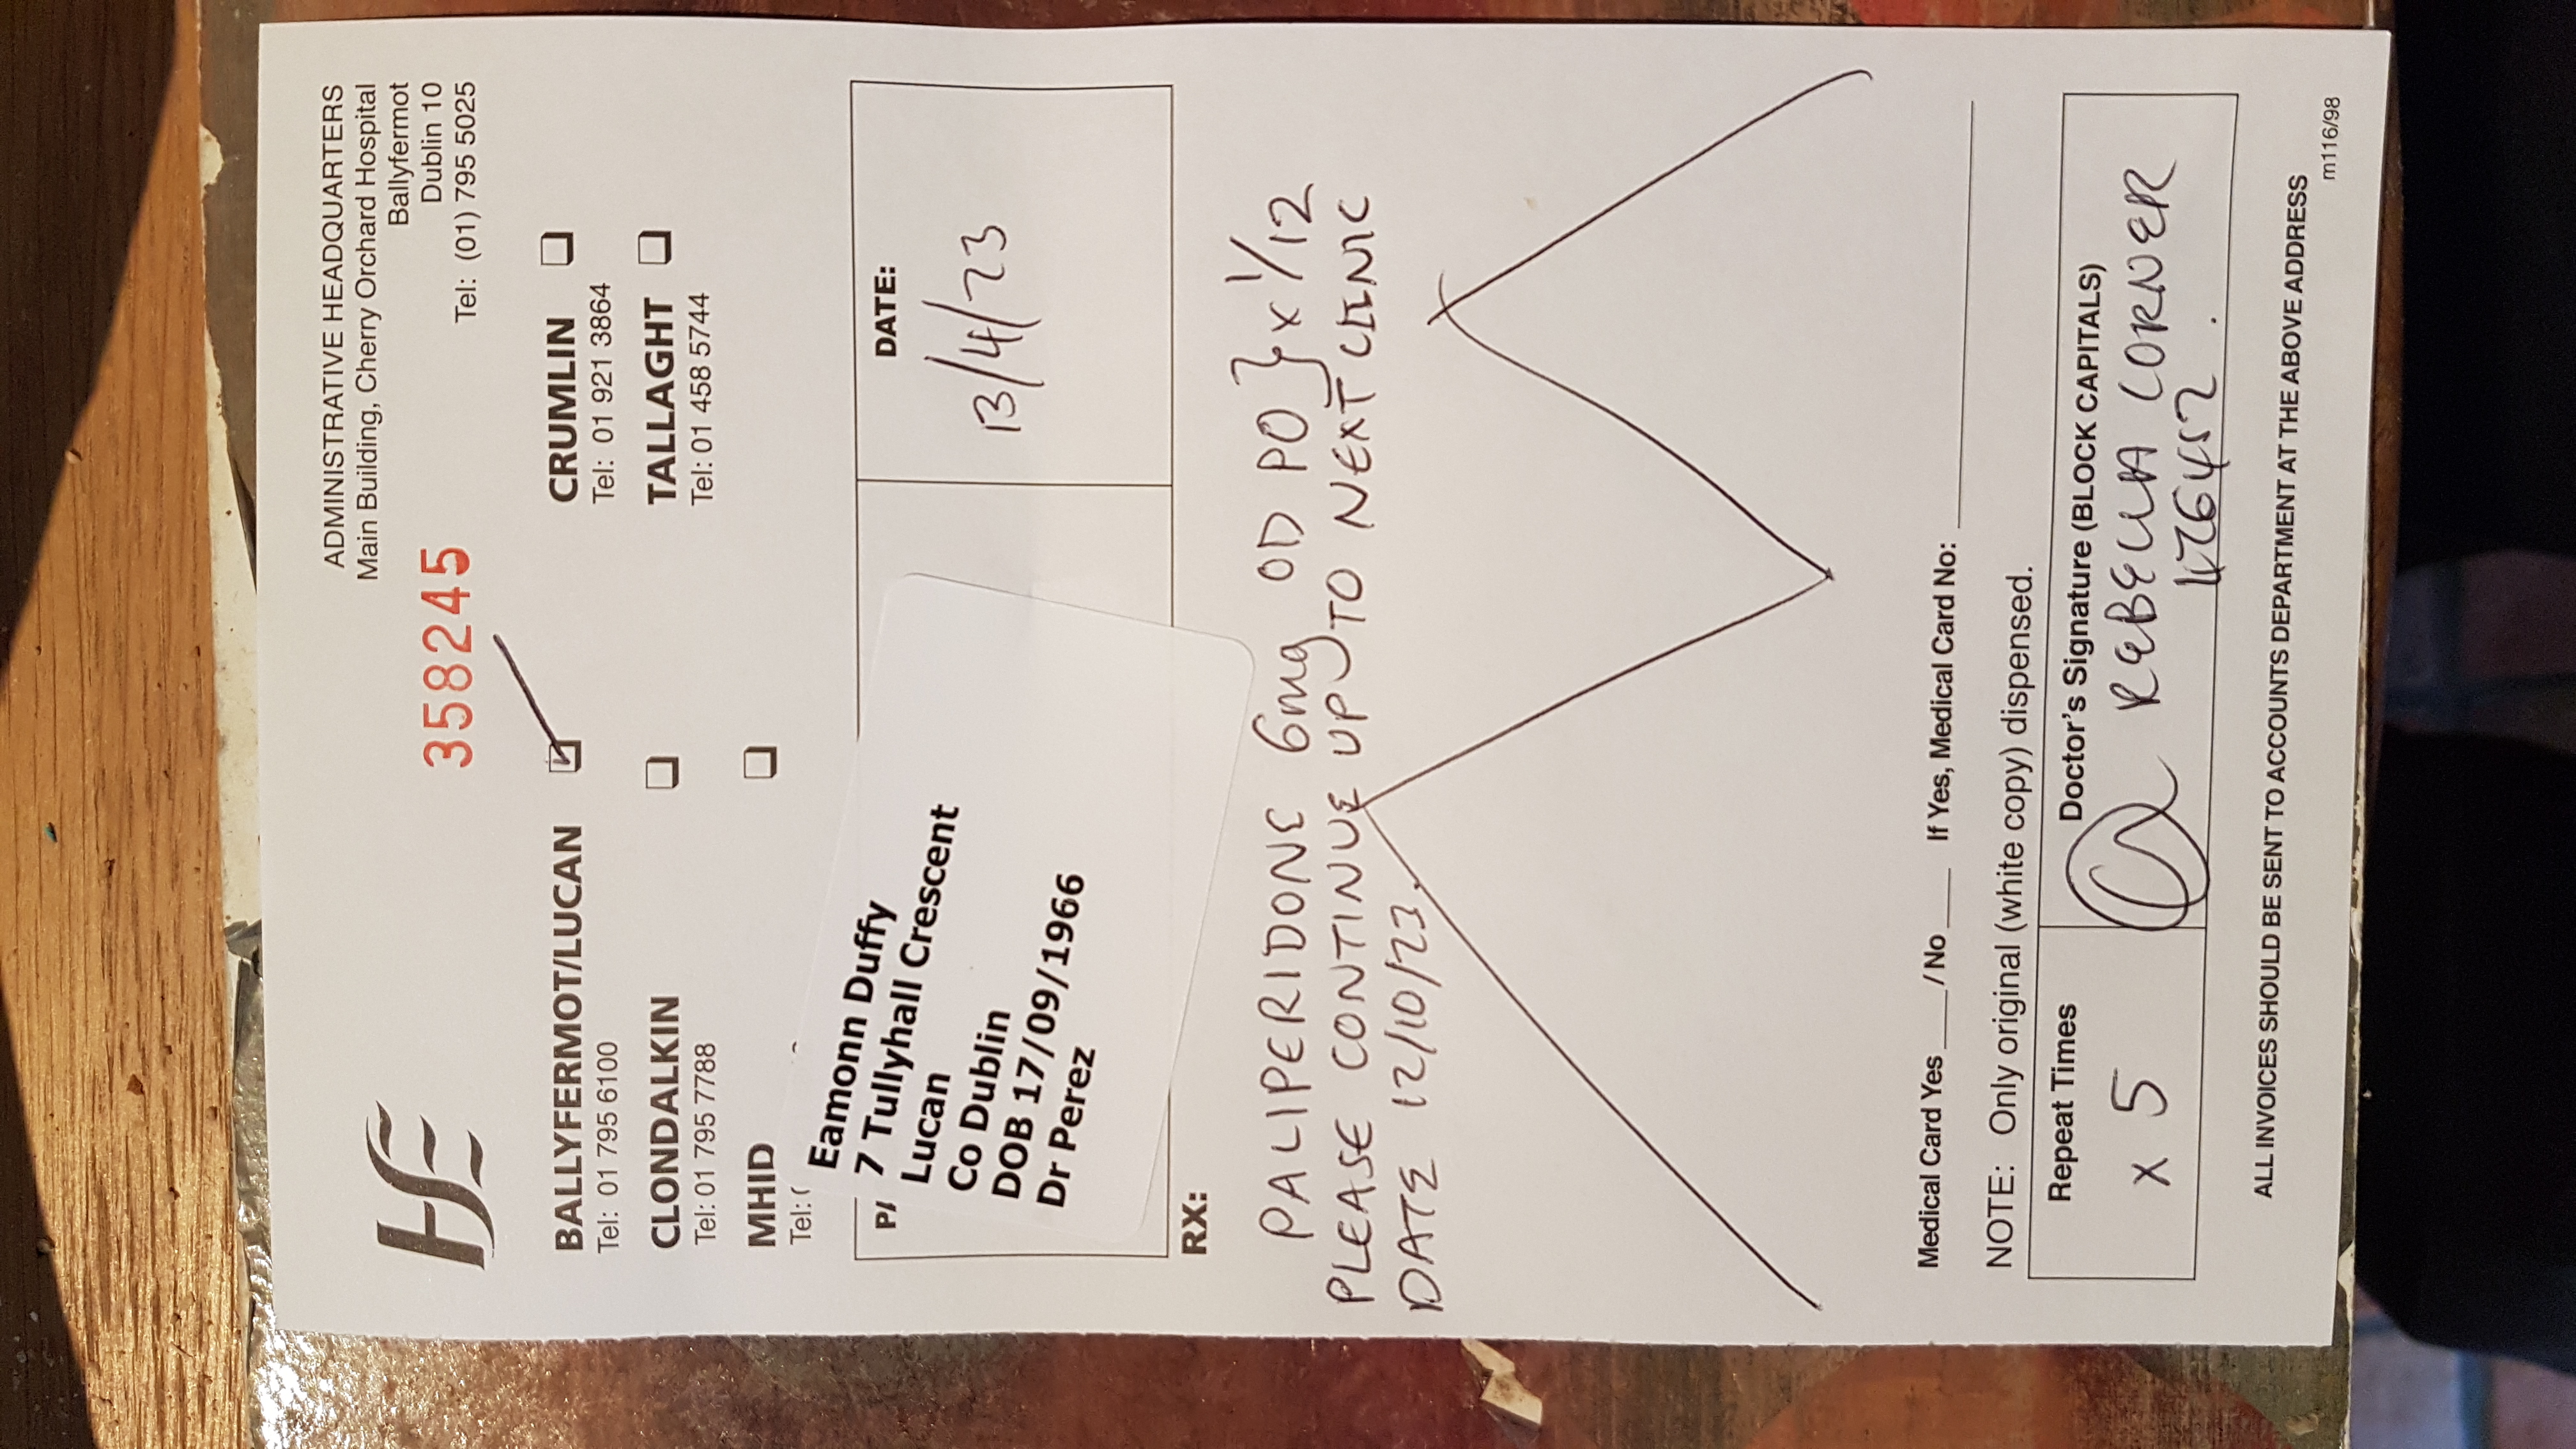 HSE
ADMINISTRATIVE HEADQUARTERS
Main Building, Cherry Orchard Hospital
Ballyfermot
Dublin 10
Tel: (01) 795 5025
358245
BALLYFERMOT/LUCAN
Tel: 01 795 6100
CRUMLIN
Tel: 01 921 3864
CLONDALKIN
Tel: 01 795 7788
TALLAGHT
Tel: 01 458 5744
MHID
Tel:
Eamonn Duffy
7 Tullyhall Crescent
Lucan
Co Dublin
DOB 17/09/1966
Dr Perez
DATE:
13/4/23
RX:
PALIPERIDONE 6mg OD PO } x 1/12
PLEASE CONTINUE UP TO NEXT CLINIC
DATE 12/10/23.
Medical Card Yes ____ / No ____ If Yes, Medical Card No: ____
NOTE: Only original (white copy) dispensed.
Repeat Times
x 5
Doctor's Signature (BLOCK CAPITALS)
CORNER
ALL INVOICES SHOULD BE SENT TO ACCOUNTS DEPARTMENT AT THE ABOVE ADDRESS
m116/98